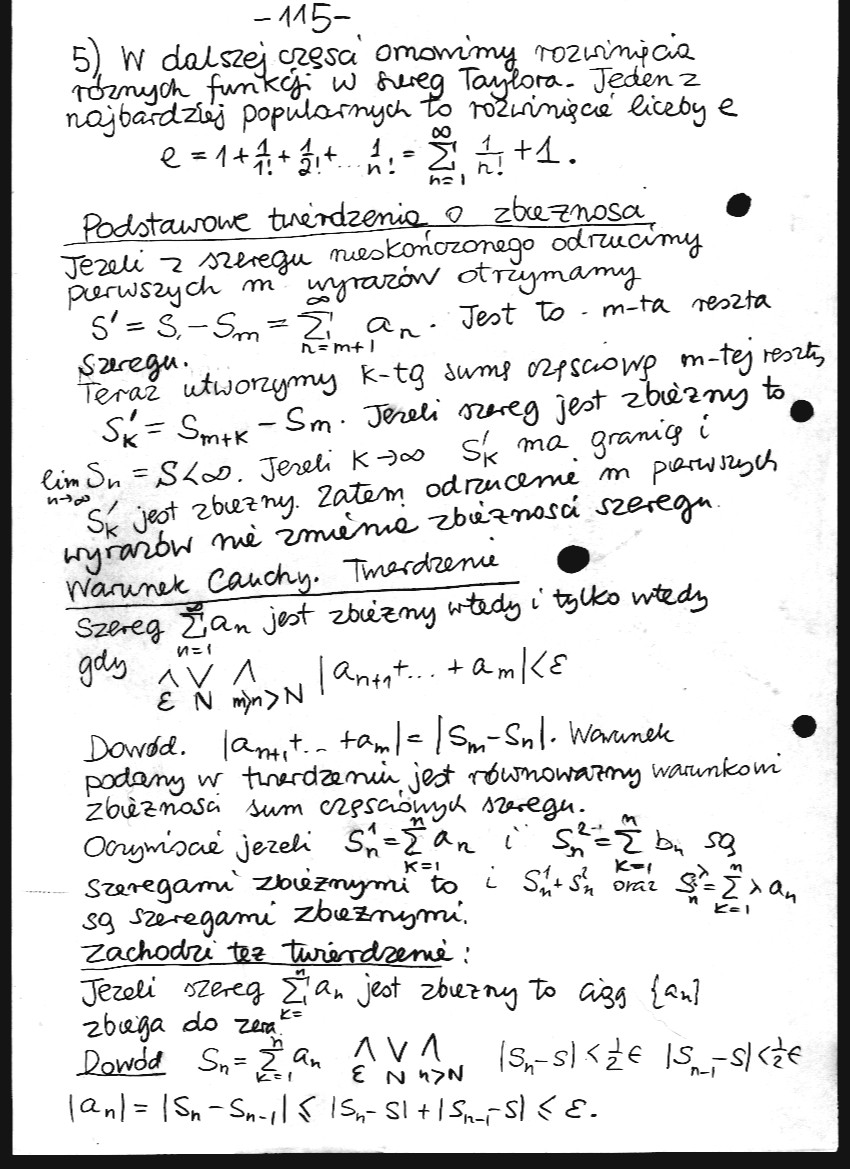 -115-
5) W dalszej części omówimy rozwinięcia
różnych funkcji w szereg Taylora. Jeden z
najbardziej popularnych to rozwinięcie liczby e
e = 1 + 1/1! + 1/2! + ... 1/n! = ∑_{n=1}^{∞} 1/n! + 1.
Podstawowe twierdzenia o zbieżności
Jeżeli z szeregu nieskończonego odrzucimy
pierwszych m wyrazów otrzymamy
S' = S - S_m = ∑_{n=m+1}^{∞} a_n. Jest to m-ta reszta
szeregu.
Teraz utworzymy k-tą sumę częściową m-tej reszty
S'_k = S_{m+k} - S_m. Jeżeli szereg jest zbieżny to
lim_{n→∞} S_n = S < ∞. Jeżeli k→∞ S'_k ma granicę i
S'_k jest zbieżny. Zatem odrzucenie m pierwszych
wyrazów nie zmienia zbieżności szeregu.
Warunek Cauchy. Twierdzenie
Szereg ∑_{n=1}^{∞} a_n jest zbieżny wtedy i tylko wtedy
gdy ⋀_ε ⋁_N ⋀_{m>n>N} |a_{n+1} + ... + a_m| < ε
Dowód. |a_{n+1} + ... + a_m| = |S_m - S_n|. Warunek
podany w twierdzeniu jest równoważny warunkowi
zbieżności sum częściowych szeregu.
Oczywiście jeżeli S_n^1 = ∑_{k=1}^{n} a_n i S_n^2 = ∑_{k=1}^{n} b_n są
szeregami zbieżnymi to i S_n^1 + S_n^2 oraz S_n^λ = ∑_{k=1}^{n} λ a_n
są szeregami zbieżnymi.
Zachodzi też twierdzenie:
Jeżeli szereg ∑_{k=}^{n} a_n jest zbieżny to ciąg {a_n}
zbiega do zera
Dowód S_n = ∑_{k=1}^{n} a_n ⋀_ε ⋁_N ⋀_{n>N} |S_n - S| < ½ε |S_{n-1} - S| < ½ε
|a_n| = |S_n - S_{n-1}| ≤ |S_n - S| + |S_{n-1} - S| ≤ ε.